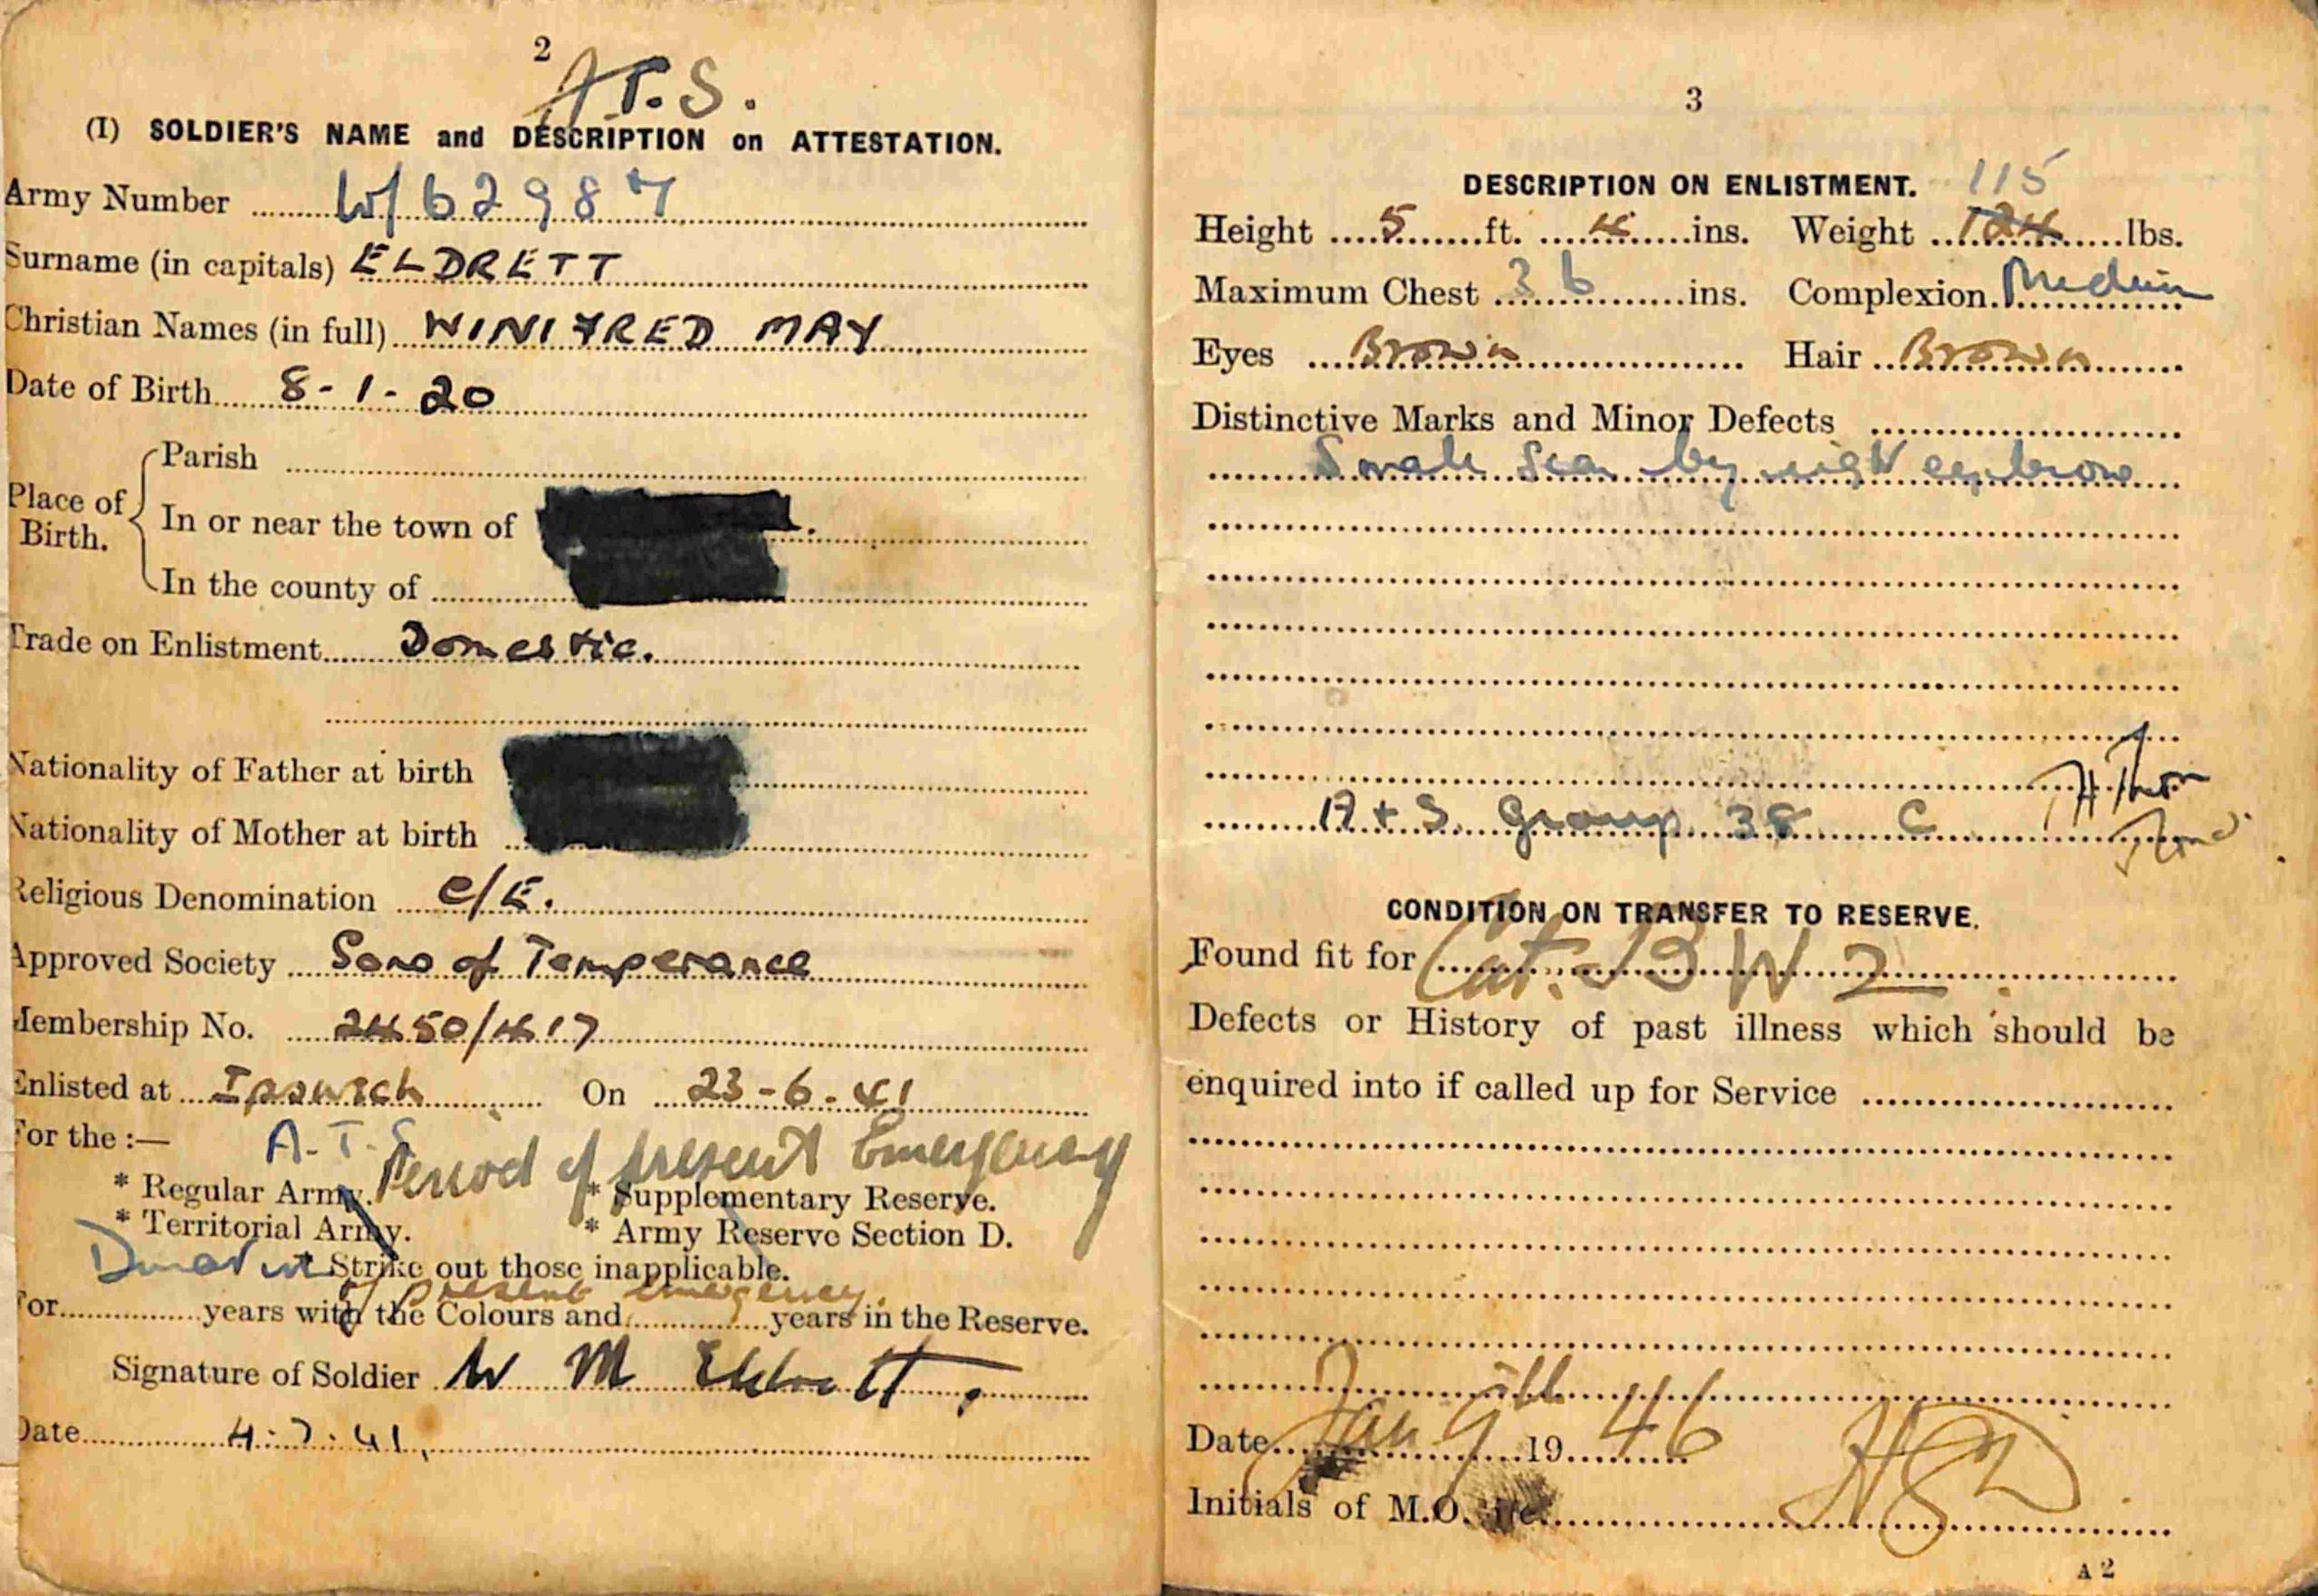 2
A.T.S.
(I) SOLDIER'S NAME and DESCRIPTION on ATTESTATION.
Army Number W/62987
Surname (in capitals) ELDRETT
Christian Names (in full) WINIFRED MAY
Date of Birth 8-1-20
Place of Birth.
Parish
In or near the town of
In the county of
Trade on Enlistment Domestic.
Nationality of Father at birth
Nationality of Mother at birth
Religious Denomination C/E.
Approved Society Sons of Temperance
Membership No. 2450/417
Enlisted at Ipswich On 23-6-41
For the :— A.T.S. Period of present Emergency
* Regular Army. * Supplementary Reserve.
* Territorial Army. * Army Reserve Section D.
Strike out those inapplicable.
of present emergency.
For years with the Colours and years in the Reserve.
Signature of Soldier W M Eldrett.
Date 4.7.41.
3
DESCRIPTION ON ENLISTMENT. 115
Height 5 ft. 4 ins. Weight 124 lbs.
Maximum Chest 36 ins. Complexion Medium
Eyes Brown Hair Brown
Distinctive Marks and Minor Defects
Small scar by right eyebrow
A + S Group 38 C
CONDITION ON TRANSFER TO RESERVE.
Found fit for Cat. W 2
Defects or History of past illness which should be
enquired into if called up for Service
Date Jan 9 19 46
Initials of M.O.
A 2